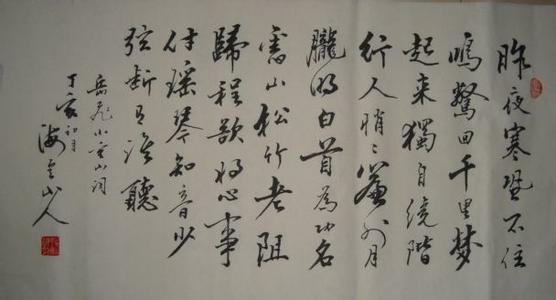 昨夜寒蛩不住
鳴驚回千里夢
起來獨自繞階
行人悄々簾外月
朧明白首為功名
舊山松竹老阻
歸程欲將心事
付瑤琴知音少
弦斷有誰聽
岳飛小重山詞
丁亥初月
海山人